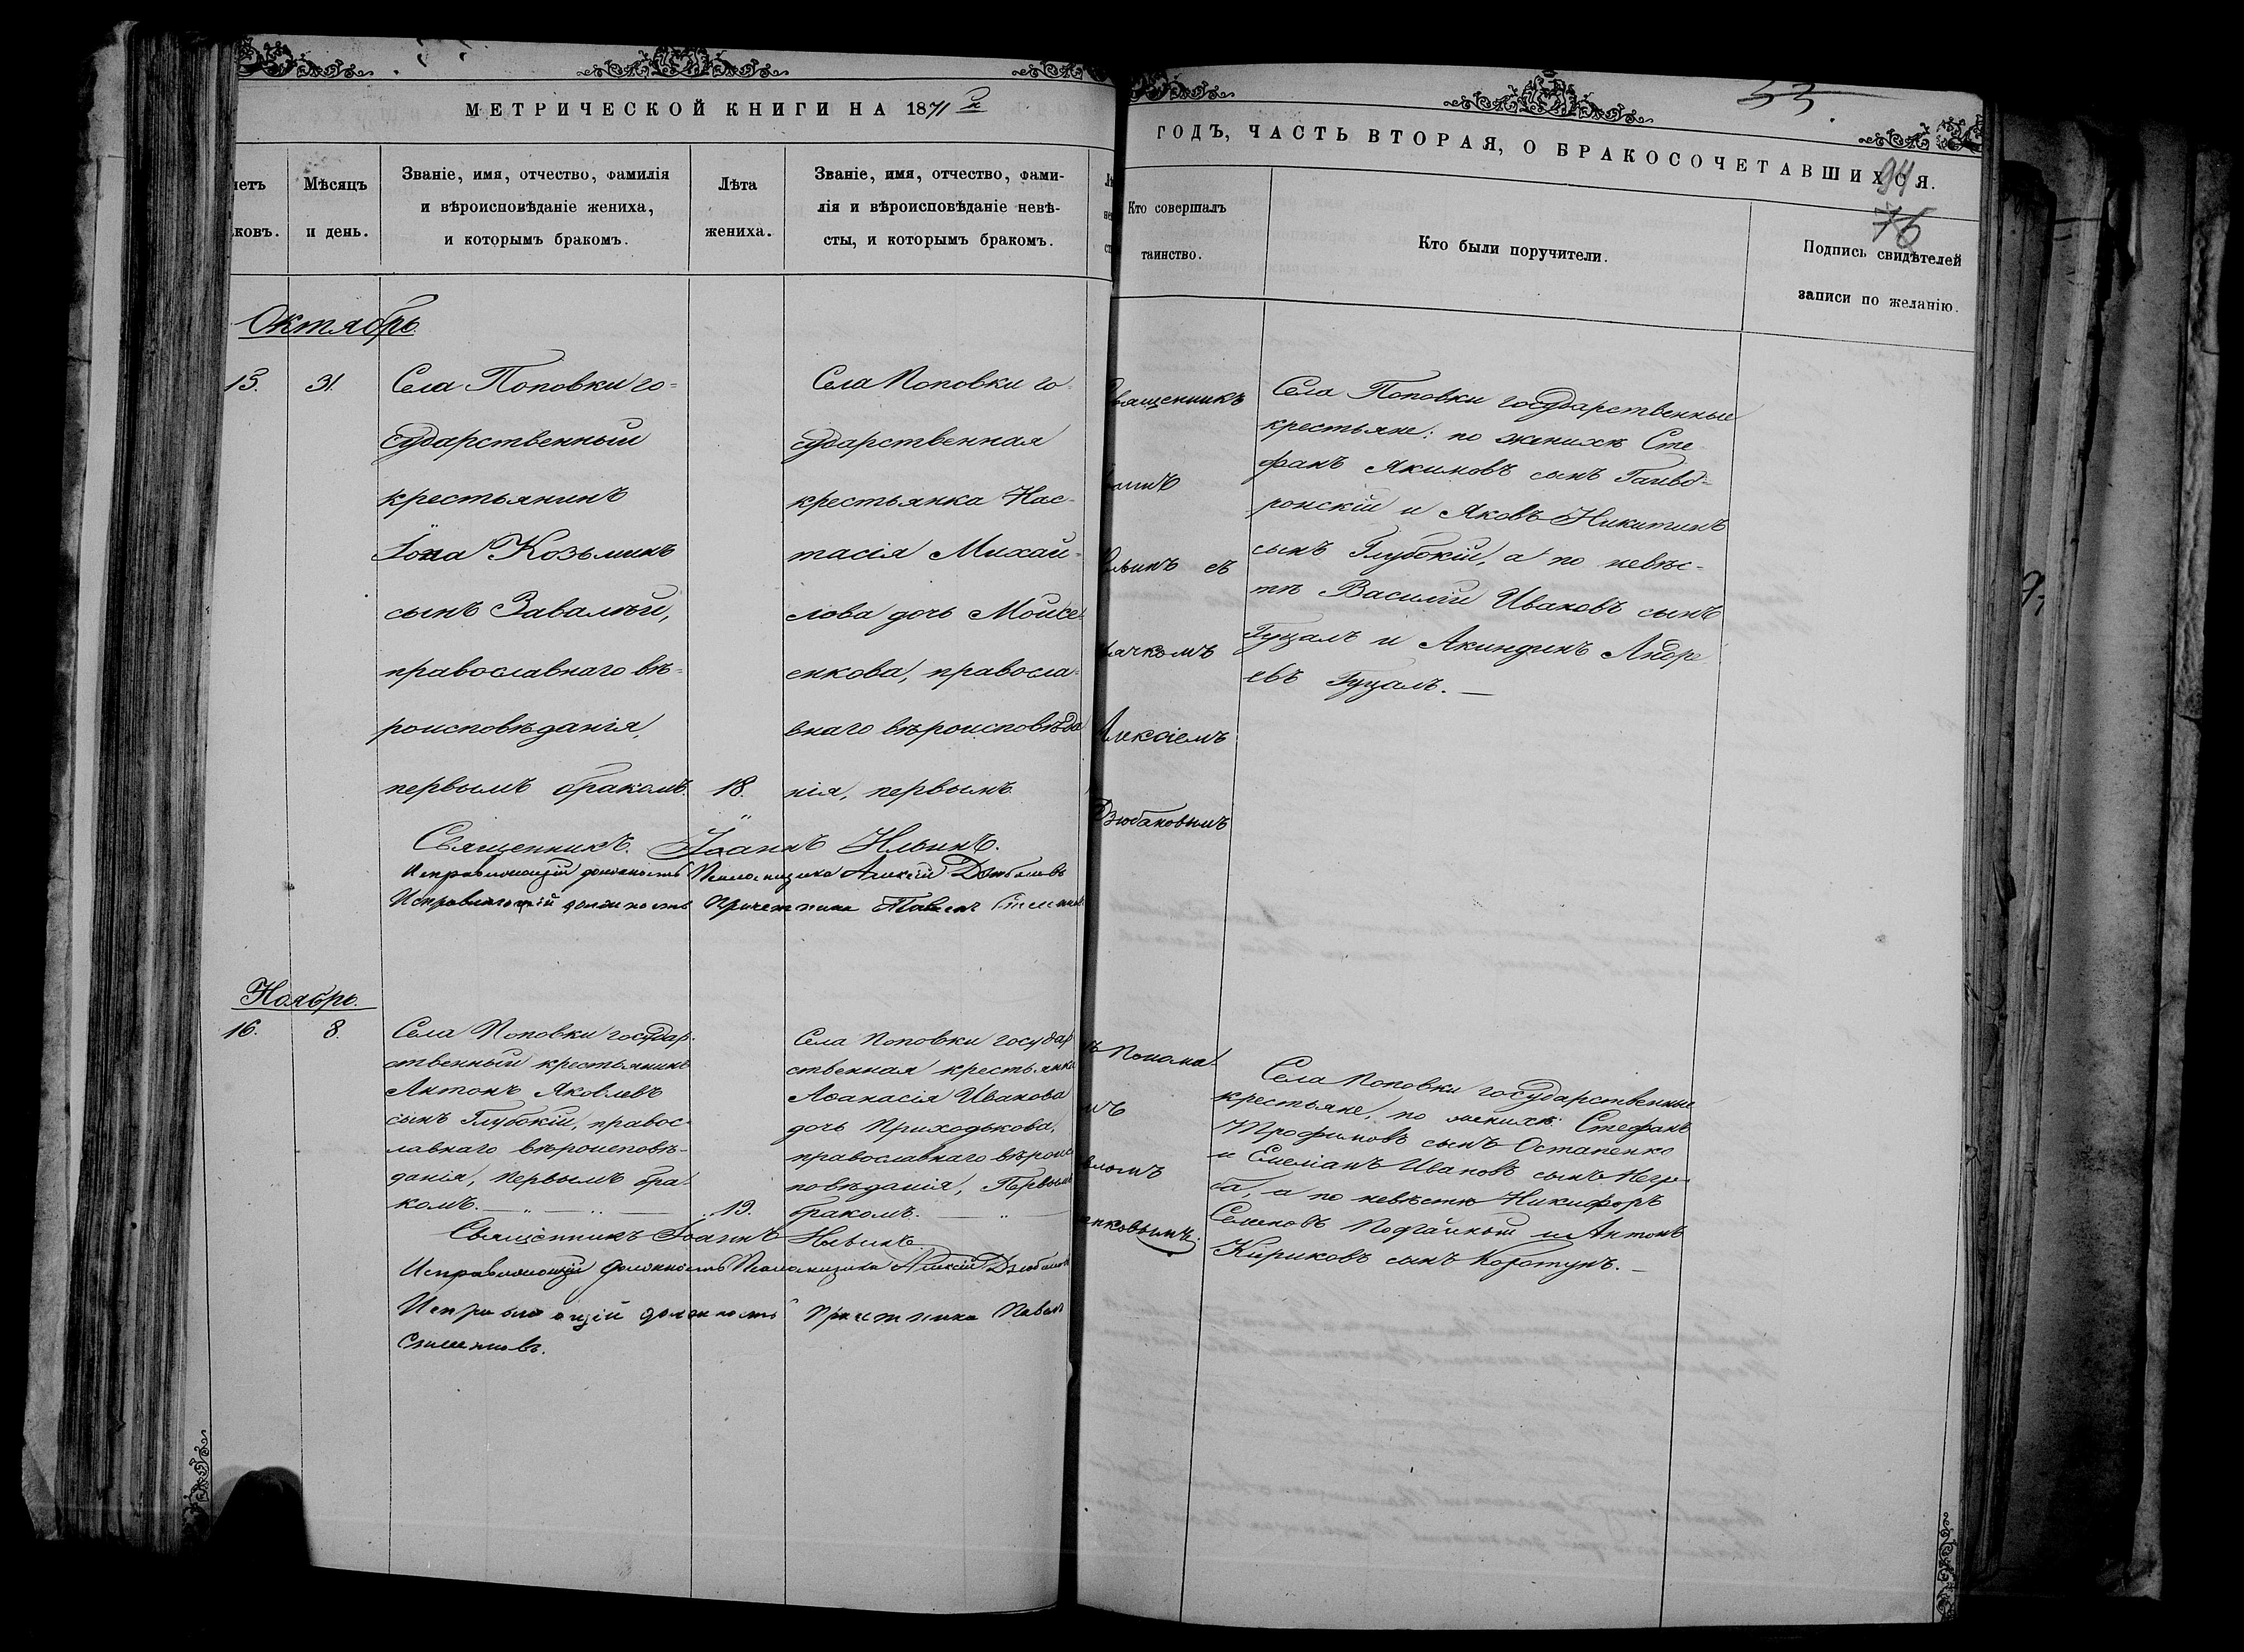 МЕТРИЧЕСКОЙ КНИГИ НА 1871
ГОДЪ, ЧАСТЬ ВТОРАЯ, О БРАКОСОЧЕТАВШИХСЯ.
53
94
76
четъ
ковъ.
Мѣсяцъ
и день.
Званіе, имя, отчество, фамилія
и вѣроисповѣданіе жениха,
и которымъ бракомъ.
Лѣта
жениха.
Званіе, имя, отчество, фами-
лія и вѣроисповѣданіе невѣ-
сты, и которымъ бракомъ.
Кто совершалъ
таинство.
Кто были поручители.
Подпись свидѣтелей
записи по желанію.
Октябрь
15. 31.
Села Поповки го=
сударственный
крестьянинъ
Іона Козьминъ
сынъ Завалѣй,
православнаго вѣ=
роисповѣданія,
первымъ бракомъ. 18.
Села Поповки го=
сударственная
крестьянка Нас-
тасія Михай=
лова дочь Моисе
енкова, правосла-
внаго вѣроисповѣда
нія, первымъ
вященникъ
Ильинъ съ
ячкомъ
Алексіемъ
Дзюбановымъ
Села Поповки государственные
крестьяне: по женихѣ Сте
фанъ Якимовъ сынъ Гайво=
ронскій и Яковъ Никитинъ
сынъ Глубокій, а по невѣс-
тѣ Василій Ивановъ сынъ
Гуцалъ и Акиндинъ Андре
евъ Гуцалъ.
Священникъ Іоаннъ Ильинъ.
Исправляющій должность Псаломщика Алексій Дзюбановъ
Исправляющій должность Причетника Павелъ
Ноябрь.
16. 8.
Села Поповки государ-
ственный крестьянинъ
Антонъ Яковлевъ
сынъ Глубокій, правос-
лавнаго вѣроисповѣ-
данія, первымъ бра-
комъ. 19.
Села Поповки государ
ственная крестьянка
Аѳанасія Иванова
дочь Приходькова,
православнаго вѣроис
повѣданія, Первымъ
бракомъ.
Понома
енковымъ.
Села Поповки государственные
крестьяне, по женихѣ: Стефанъ
Трофимовъ сынъ Остапенко
и Емеліанъ Ивановъ сынъ Негре
ба, а по невѣстѣ Никифоръ
Семеновъ Подгайный и Антонъ
Кириковъ сынъ Коротунъ.
Священникъ Іоаннъ Ильинъ
Исправляющій должность Псаломщика Алексій Дзюбановъ
Исправляющій должность Причетника Павелъ